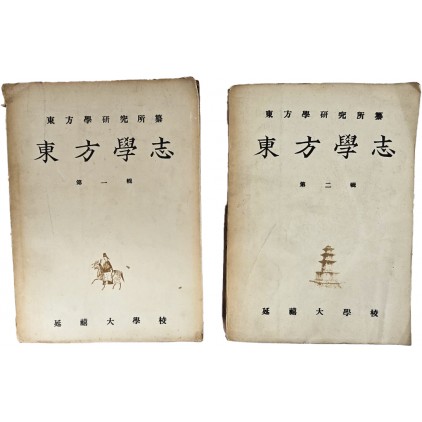 東方學研究所纂
東方學志
第一輯
延禧大學校
東方學研究所纂
東方學志
第二輯
延禧大學校